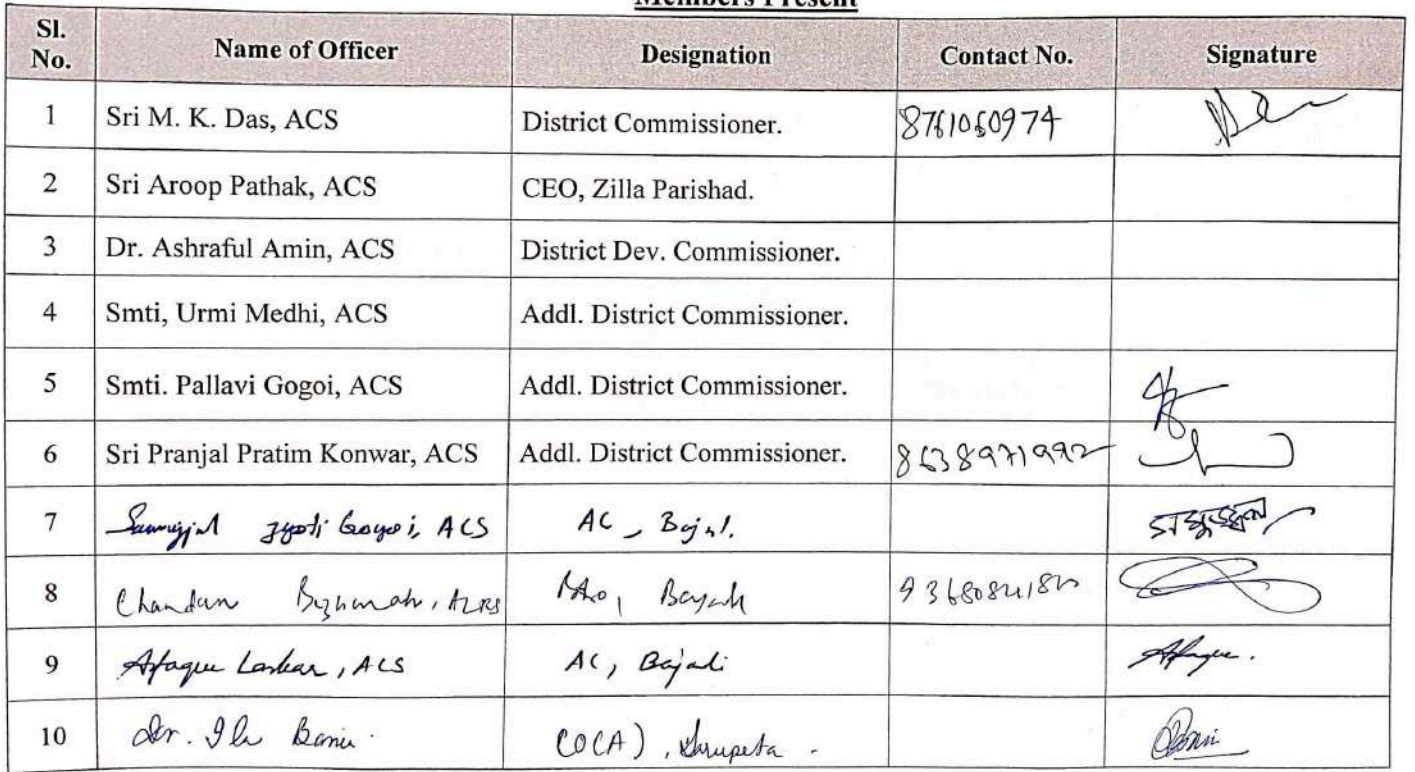 Members Present
Sl. No. Name of Officer Designation Contact No. Signature
1 Sri M. K. Das, ACS District Commissioner. 8761060974
2 Sri Aroop Pathak, ACS CEO, Zilla Parishad.
3 Dr. Ashraful Amin, ACS District Dev. Commissioner.
4 Smti, Urmi Medhi, ACS Addl. District Commissioner.
5 Smti. Pallavi Gogoi, ACS Addl. District Commissioner.
6 Sri Pranjal Pratim Konwar, ACS Addl. District Commissioner. 8638971992
7 Jyoti Gogoi, ACS AC,
8 Chandan
9 Afaque Laskar, ACS AC, Bajali Afaque.
10 Dr. Ila